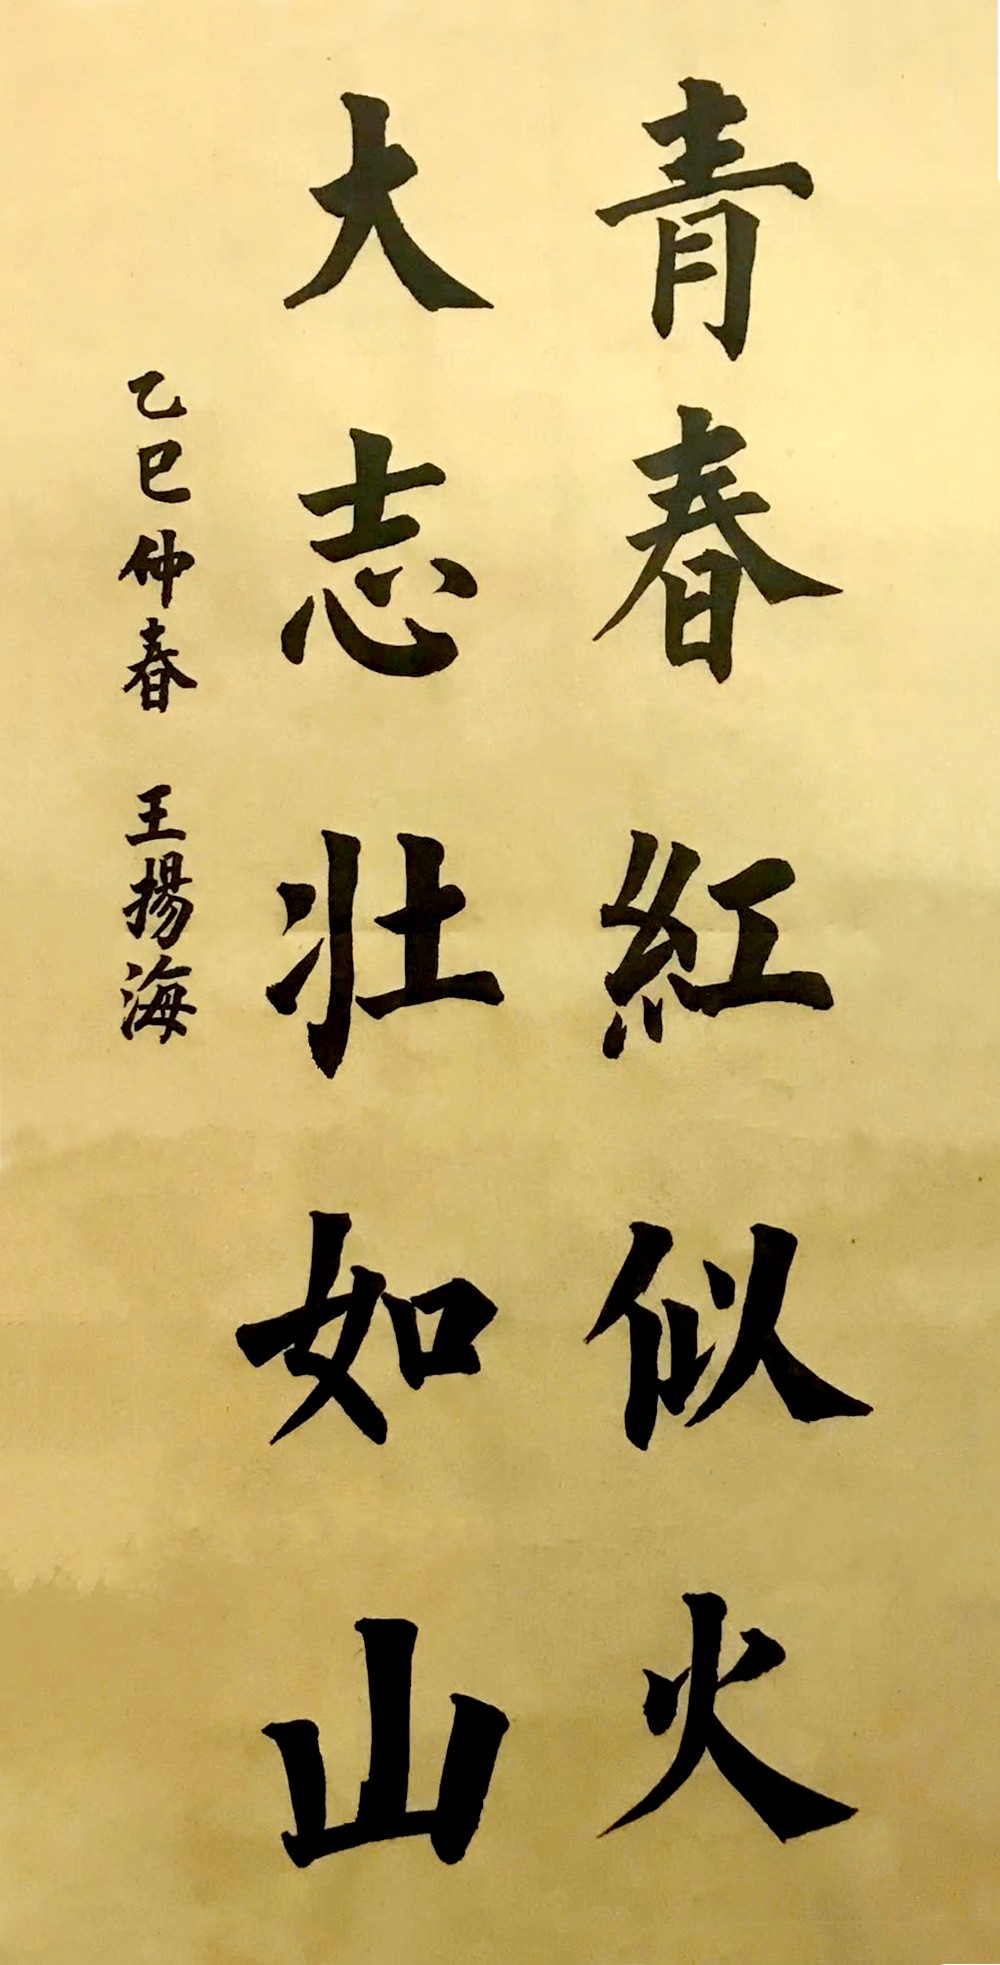 青春紅似火
大志壮如山
乙巳仲春 王揚海